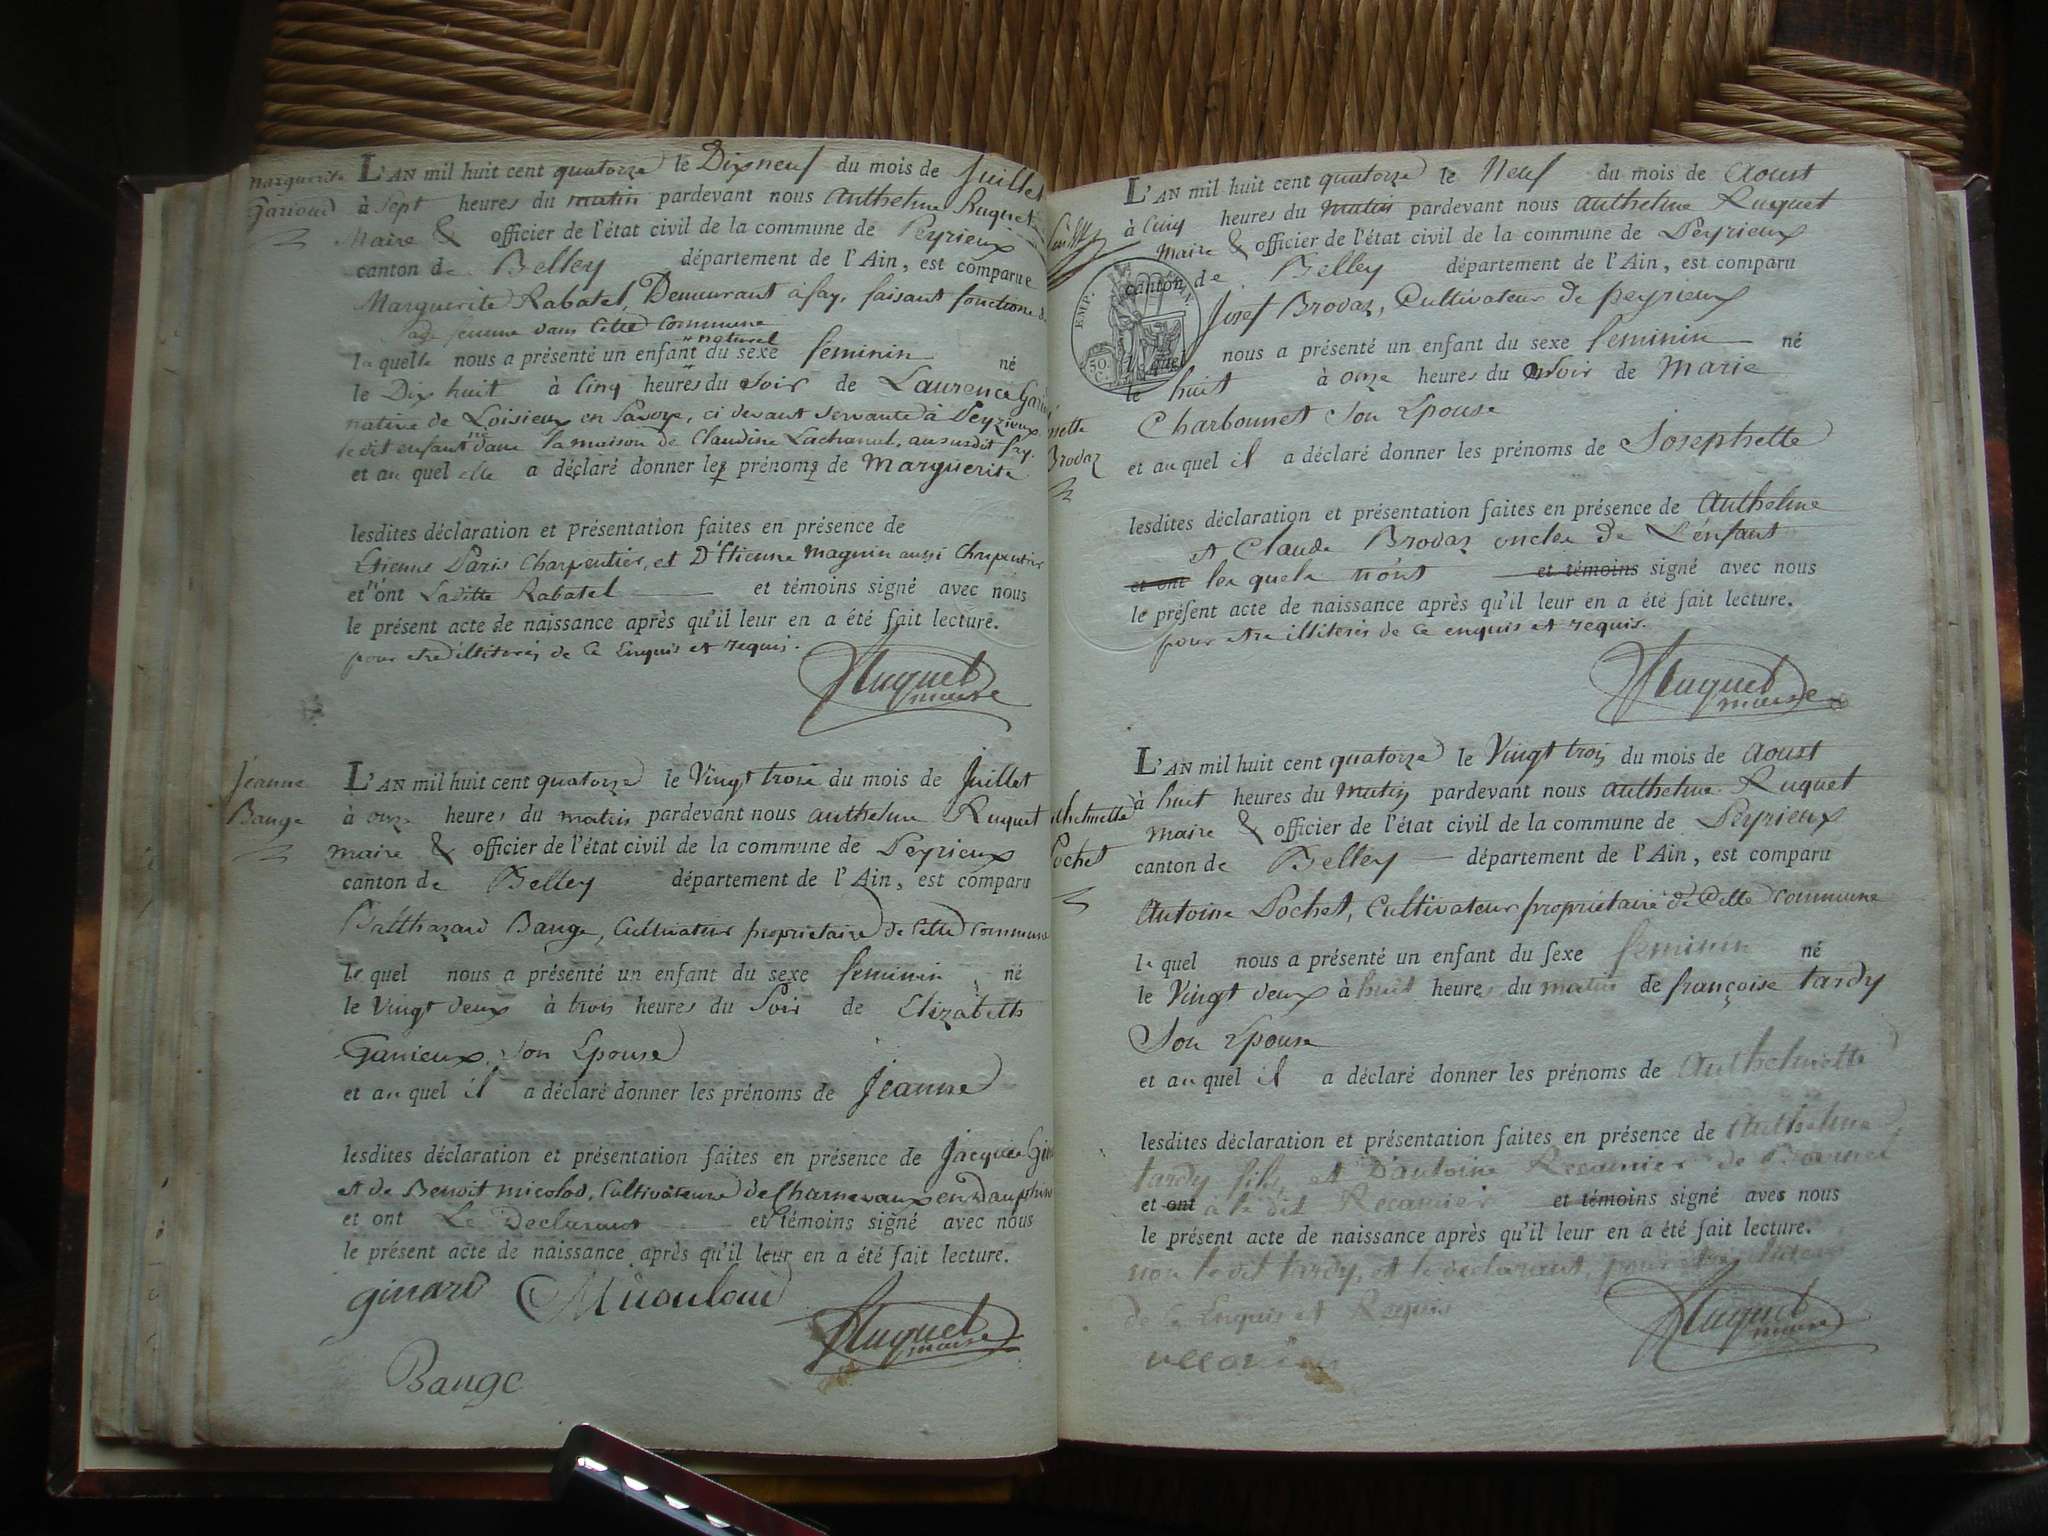 Marguerite
Garioud
L'AN mil huit cent quatorze le Dixneuf du mois de Juillet
à Sept heures du matin pardevant nous anthelme Ruguet
Maire & officier de l'état civil de la commune de Peyrieux
canton de Belley département de l'Ain, est comparue
Marguerite Rabatel, Demeurant à fay, faisant fonctions de
sage femme dans Cette Commune
laquelle nous a présenté un enfant naturel du sexe feminin né
le Dix huit à Cinq heures du soir de Laurence
native de Loisieux en Savoye, ci devant servante à Peyrieux
le dit enfant né dans la maison de Claudine Lachanal, au susdit fay.
et au quel elle a déclaré donner les prénoms de Marguerite
lesdites déclaration et présentation faites en présence de
Etienne Paris Charpentier, et D'Etienne Magnin aussi Charpentier
et n'ont Laditte Rabatel et témoins signé avec nous
le présent acte de naissance après qu'il leur en a été fait lecture.
pour etre illiterés de Ce Enquis et requis.
Ruguet
maire
Jeanne
Bange
L'AN mil huit cent quatorze le Vingt trois du mois de Juillet
à onze heures du matin pardevant nous anthelme Ruguet
maire & officier de l'état civil de la commune de Peyrieux
canton de Belley département de l'Ain, est comparu
Balthazard Bange, Cultivateur propriétaire de Cette Commune
le quel nous a présenté un enfant du sexe feminin né
le Vingt deux à trois heures du Soir de Elizabeth
Ganieux, son Epouse
et au quel il a déclaré donner les prénoms de Jeanne
lesdites déclaration et présentation faites en présence de Jacques
et de Benoit micolod, Cultivateurs de Charnevaux en Dauphiné
et ont Le Declarant et témoins signé avec nous
le présent acte de naissance après qu'il leur en a été fait lecture.
ginard
Ruguet
maire
Bange
L'AN mil huit cent quatorze le Neuf du mois de Aoust
à Cinq heures du matin pardevant nous anthelme Ruguet
maire & officier de l'état civil de la commune de Peyrieux
canton de Belley département de l'Ain, est comparu
EMP.
50
C.
Josef Brodaz, Cultivateur de peyrieux
le quel nous a présenté un enfant du sexe feminin né
le huit à onze heures du soir de Marie
Charbonnet son Epouse
Brodaz
et au quel il a déclaré donner les prénoms de Josephette
lesdites déclaration et présentation faites en présence de Anthelme
et Claude Brodaz oncles de L'enfant
et ont les quels n'ont et témoins signé avec nous
le présent acte de naissance après qu'il leur en a été fait lecture.
pour etre illiterés de Ce enquis et requis.
Ruguet
maire
thelmette
Pochet
L'AN mil huit cent quatorze le Vingt trois du mois de Aoust
à huit heures du matin pardevant nous anthelme Ruguet
maire & officier de l'état civil de la commune de Peyrieux
canton de Belley département de l'Ain, est comparu
Antoine Pochet, Cultivateur propriétaire de Cette Commune
le quel nous a présenté un enfant du sexe feminin né
le Vingt deux à huit heures du matin de françoise tardy
Son Epouse
et au quel il a déclaré donner les prénoms de Anthelmette
lesdites déclaration et présentation faites en présence de Anthelme
tardy fils et D'antoine Recamier de
et ont à le dit Recamier et témoins signé avec nous
le présent acte de naissance après qu'il leur en a été fait lecture.
non le dit tardy, et le declarant, pour etre
de Ce Enquis et Requis
Ruguet
maire